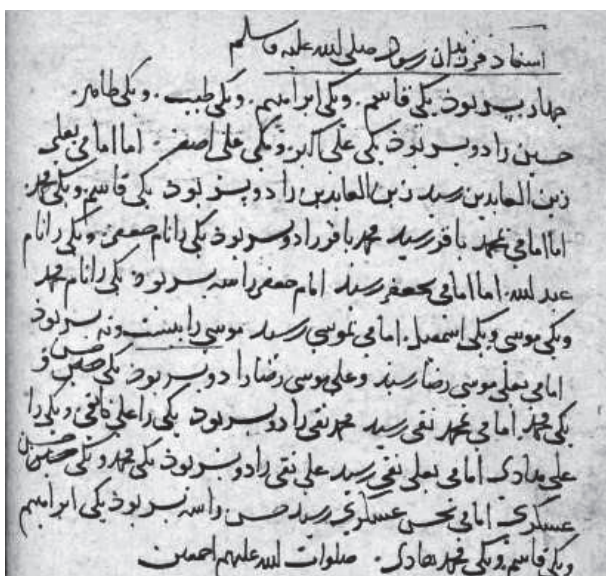 اسماء فرزندان رسول صلی الله علیه و سلم
چهار پسر بوذ یکی قاسم. ویکی ابراهیم. ویکی طیب. ویکی طاهر.
حسین را دو پسر بوذ یکی علی اکبر. ویکی علی اصغر. اما امامی بعلی
زین العابدین رسید زین العابدین را دو پسر بوذ یکی قاسم ویکی محمد.
اما امامی بمحمد باقر رسید محمد باقر را دو پسر بوذ یکی را نام جعفر. ویکی را نام
عبد الله. اما امامی بجعفر رسید امام جعفر را سه پسر بوذ یکی را نام محمد
ویکی موسی ویکی اسمعیل. امامی بموسی رسید موسی را بیست و نه پسر بوذ
امامی بعلی موسی رضا رسید و علی موسی رضا را دو پسر بوذ یکی حسن و
یکی محمد. امامی بمحمد تقی رسید محمد تقی را دو پسر بوذ یکی را علی نقی. ویکی را
علی هادی. امامی بعلی نقی رسید علی نقی را دو پسر بوذ یکی محمد ویکی حسن
عسکری. امامی بحسن عسکری رسید حسن را سه پسر بوذ یکی ابراهیم
ویکی قاسم. ویکی محمد هادی. صلوات الله علیهم اجمعین